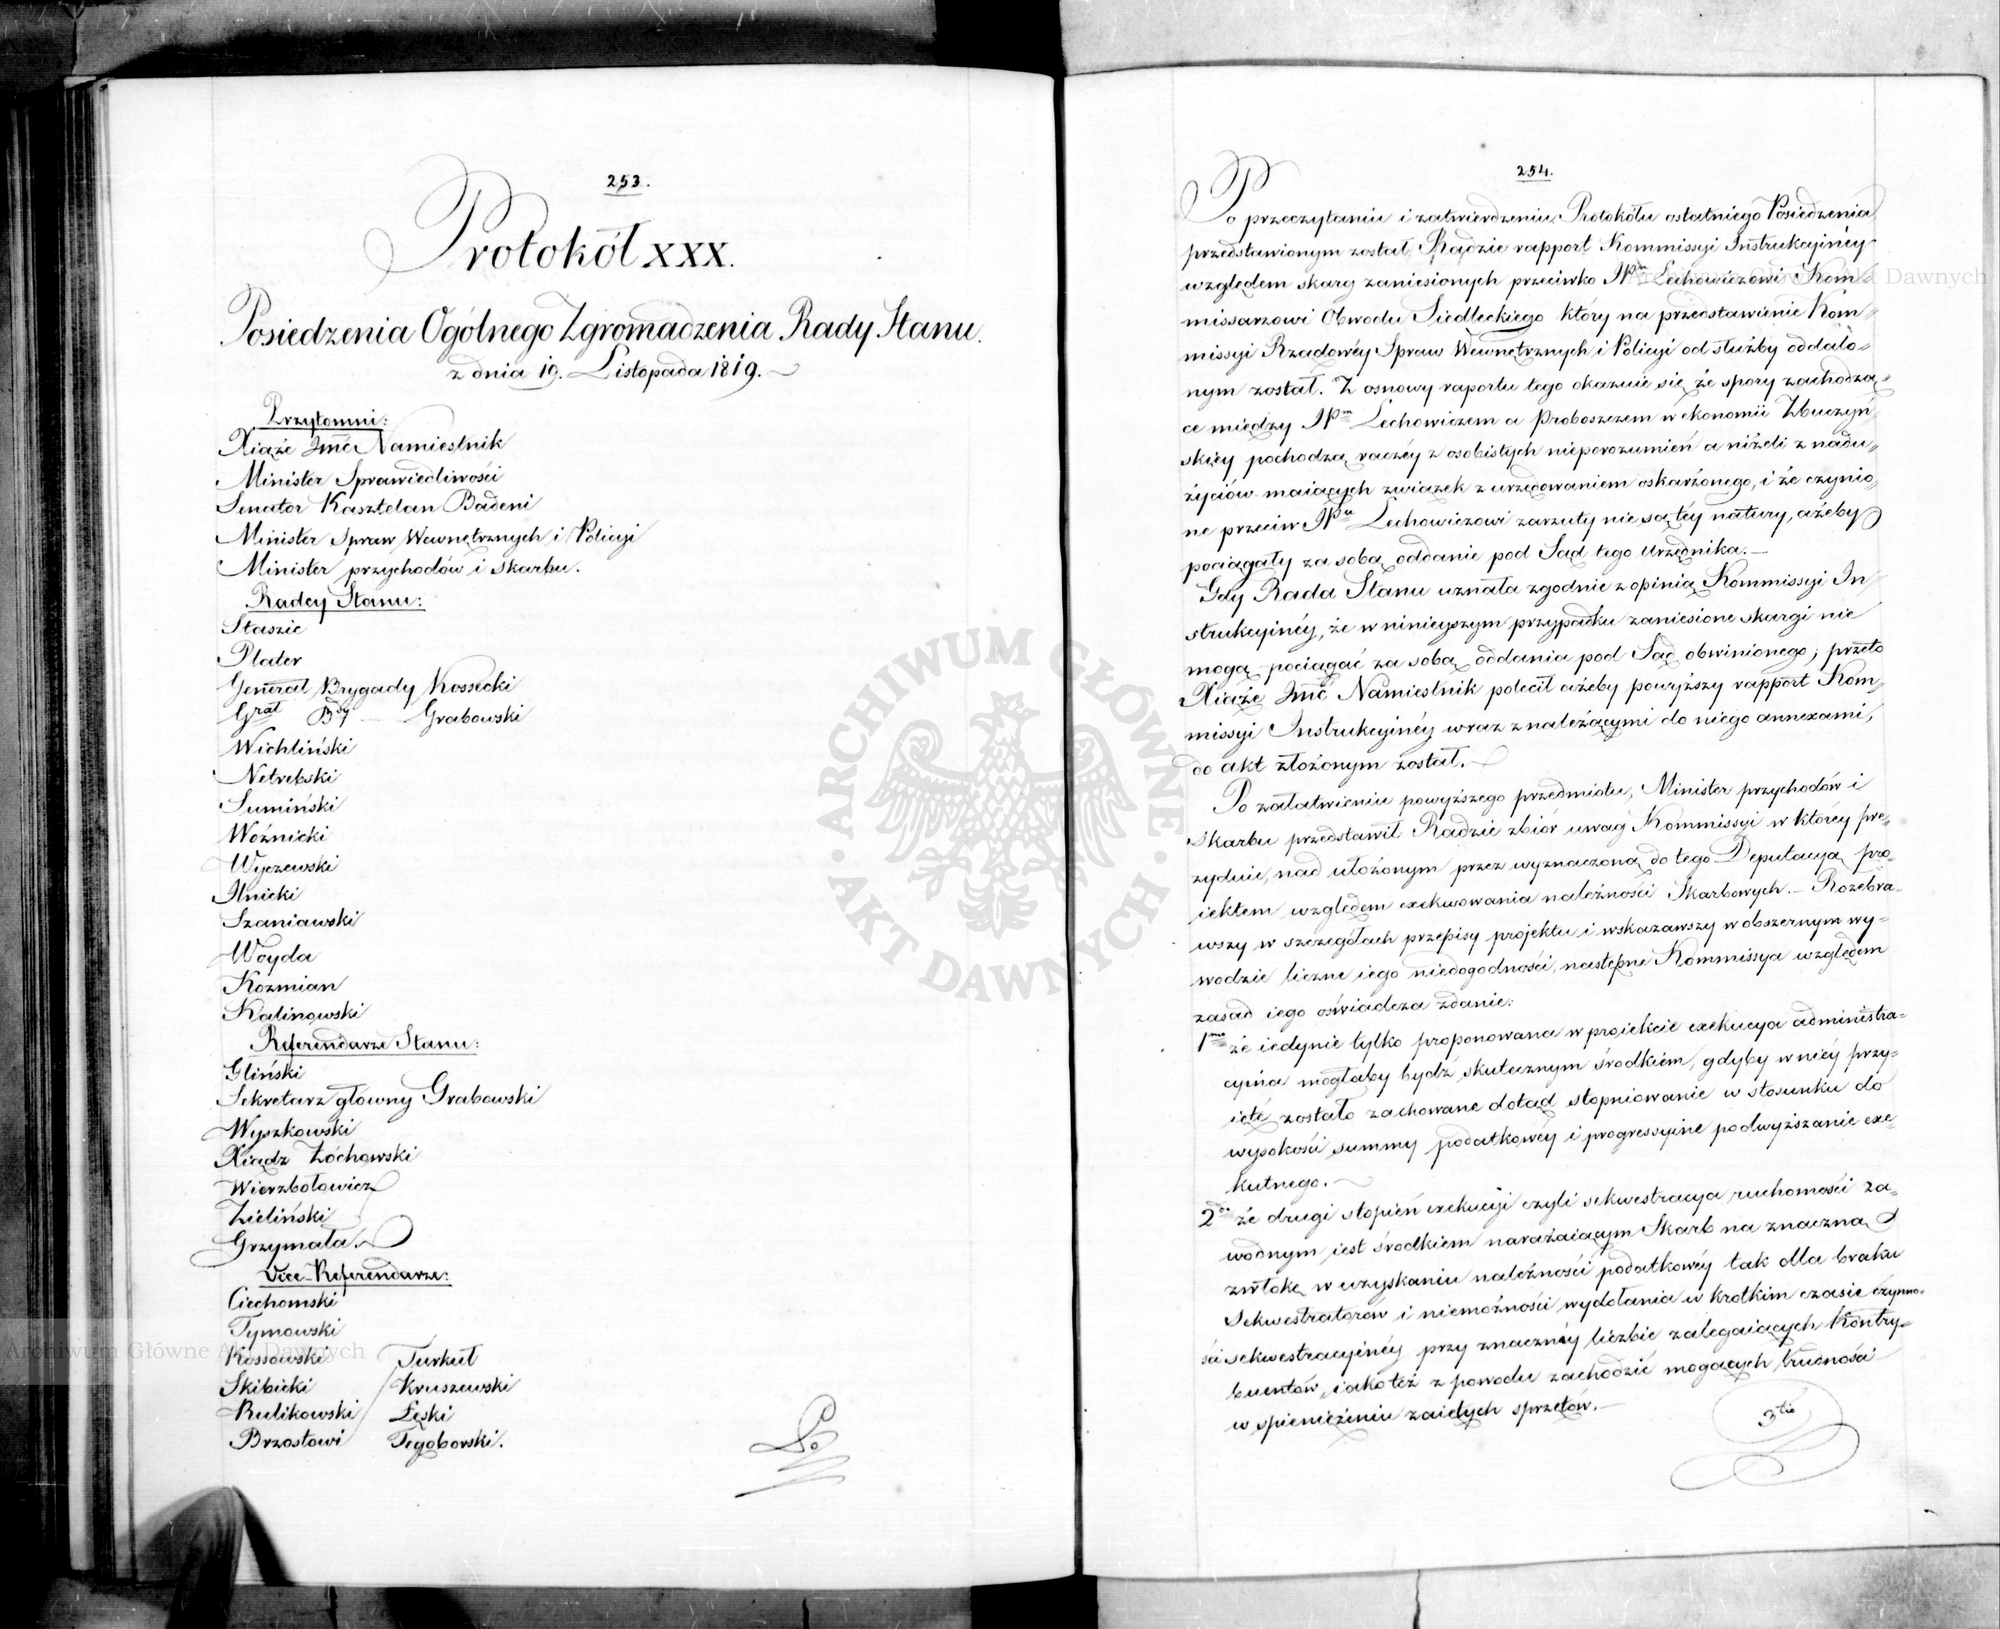 253.
Protokół XXX.
Posiedzenia Ogólnego Zgromadzenia Rady Stanu.
z dnia 19. Listopada 1819.
Przytomni:
Xiąże Jmć Namiestnik
Minister Sprawiedliwości
Senator Kasztelan Badeni
Minister Spraw Wewnętrznych i Policyi
Minister przychodów i skarbu.
Radcy Stanu:
Staszic
Plater
Generał Brygady Kossecki
Grał Bdy — Grabowski
Wichliński
Netrebski
Sumiński
Woźnicki
Wyczewski
Ilnicki
Szaniawski
Woyda
Koźmian
Kalinowski
Referendarze Stanu:
Gliński
Sekretarz główny Grabowski
Wyszkowski
Xiądz Łóchowski
Wierzbołowicz
Zieliński
Grzymała.
Vice-Referendarze:
Ciechomski
Tymowski
Kossowski Turkuł
Skibicki Kruszewski
Rulikowski Łęski
Brzostowi Tęgoborski.
Po
254.
Po przeczytaniu i zatwierdzeniu Protokółu ostatniego Posiedzenia
przedstawionym został Radzie rapport Kommissyi Instrukcyinéy
względem skarg zaniesionych przeciwko JPu Lechowiczowi Kom=
missarzowi Obwodu Siedleckiego który na przedstawienie Kom=
missyi Rządowéy Spraw Wewnętrznych i Policyi od służby oddalo=
nym został. Z osnowy raportu tego okazuie się że spory zachodzą=
ce między JPm Lechowiczem a Proboszczem w ekonomii Zbuczyń=
skiey pochodzą raczéy z osobistych nieporozumień a niżeli z nadu=
życiów maiących związek z urzędowaniem oskarżonego, i że czynio=
ne przeciw JPu Lechowiczowi zarzuty nie są téy natury, ażeby
pociągały za sobą oddanie pod Sąd tego urzędnika.—
Gdy Rada Stanu uznała zgodnie z opinią Kommissyi In=
strukcyinéy, że w ninieyszym przypadku zaniesione skargi nie
mogą pociągać za sobą oddania pod Sąd obwinionego; przeto
Xiąże Jmć Namiestnik polecił ażeby powyższy rapport Kom=
missyi Instrukcyinéy wraz z należącymi do niego annexami,
do akt złożonym został.—
Po załatwieniu powyższego przedmiotu, Minister przychodów i
Skarbu przedstawił Radzie zbiór uwag Kommissyi w któréy pre=
zyduie, nad ułożonym przez wyznaczoną do tego Deputacyą pro=
iektem względem exekwowania należności Skarbowych.— Rozebra=
wszy w szczegółach przepisy projektu i wskazawszy w obszernym wy=
wodzie liczne iego niedogodności, następne Kommissya względem
zasad iego oświadcza zdanie:
1mo że iedynie tylko proponowana w proiekcie exekucya administra=
cyina mogłaby bydź skutecznym środkiem, gdyby w niéy przy=
ięté zostało zachowane dotąd stopniowanie w stosunku do
wysokości summy podatkowéy i progressyine podwyższanie exe=
kutnego.—
2do że drugi stopień exekucyi czyli sekwestracya ruchomości za=
wodnym iest środkiem narażaiącym Skarb na znaczną
zwłokę w uzyskaniu należności podatkowéy tak dla braku
Sekwestratorów i niemożności wydołania w krótkim czasie czynno=
ści sekwestracyinéy przy znacznéy liczbie zalegaiących Kontry=
buentów, iako też z powodu zachodzić mogących trudności
w spieniężeniu zaiętych sprzętów.—
3tio
ARCHIWUM GŁÓWNE AKT DAWNYCH
Archiwum Główne Akt Dawnych
Archiwum Główne Akt Dawnych